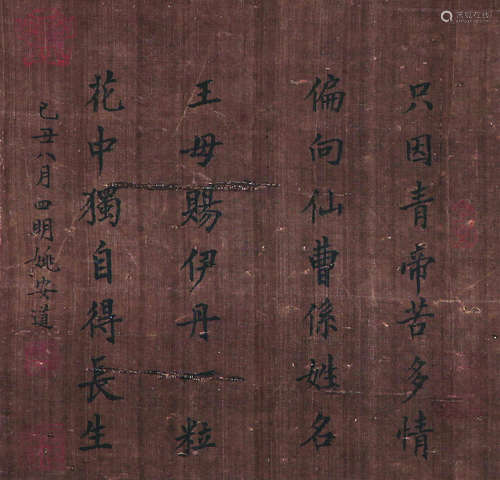 只因青帝苦多情
偏向仙曹係姓名
王母賜伊丹一粒
花中獨自得長生
己丑八月四明姚安道